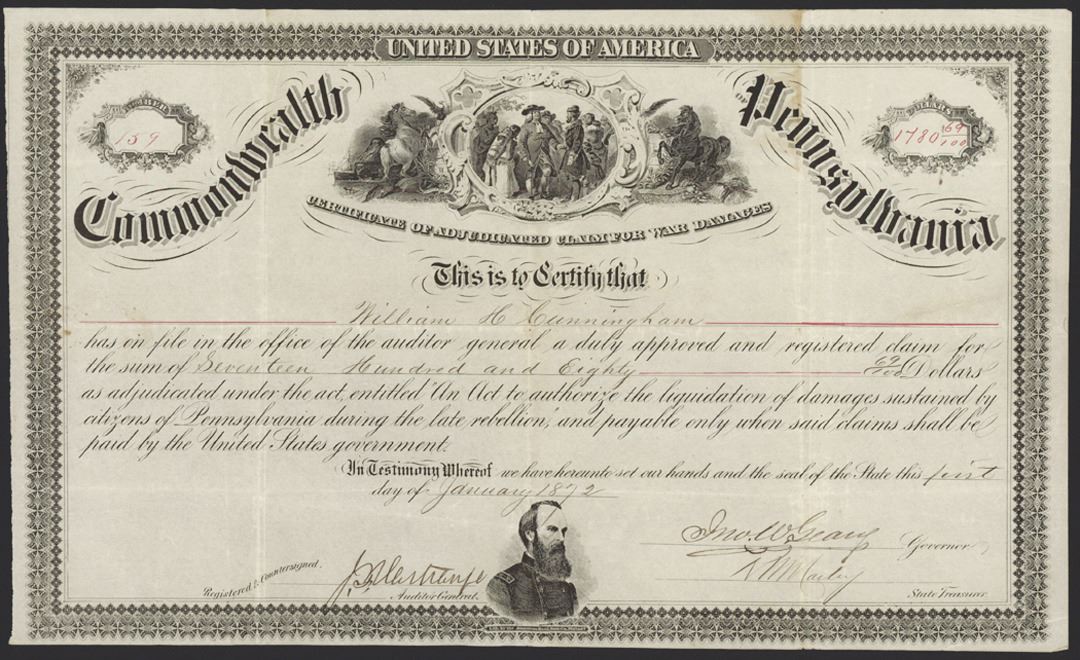 UNITED STATES OF AMERICA
NUMBER
159
Commonwealth
Pennsylvania
DOLLARS
1780 69/100
CERTIFICATE OF ADJUDICATED CLAIM FOR WAR DAMAGES
This is to Certify that
William H Cunningham
has on file in the office of the auditor general a duly approved and registered claim for
the sum of Seventeen Hundred and Eighty 69/100 Dollars
as adjudicated under the act, entitled "An Act to authorize the liquidation of damages sustained by
citizens of Pennsylvania during the late rebellion," and payable only when said claims shall be
paid by the United States government.
In Testimony Whereof we have hereunto set our hands and the seal of the State this first
day of January 1872
Jno. W. Geary Governor
Registered & Countersigned.
Auditor General.
R W Mackey
State Treasurer.